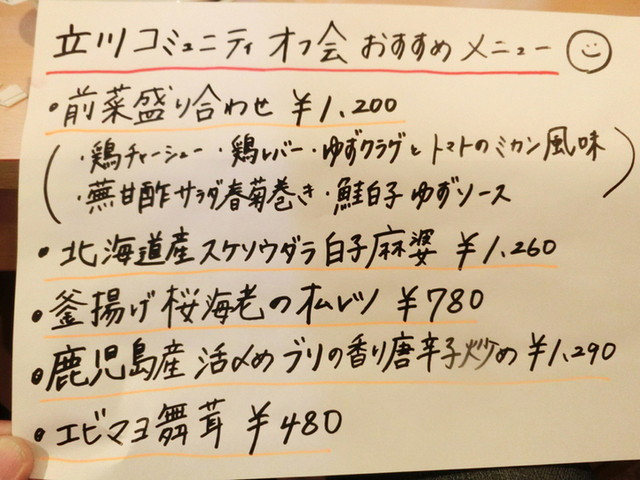 立川コミュニティオフ会おすすめメニュー
・前菜盛り合わせ ¥1,200
(・鶏チャーシュー・鶏レバー・ゆずクラゲとトマトのミカン風味
・蕪甘酢サラダ春菊巻き・鮭白子ゆずソース)
・北海道産スケソウダラ白子麻婆 ¥1,260
・釜揚げ桜海老のオムレツ ¥780
・鹿児島産活〆めブリの香り唐辛子炒め ¥1,290
・エビマヨ舞茸 ¥480